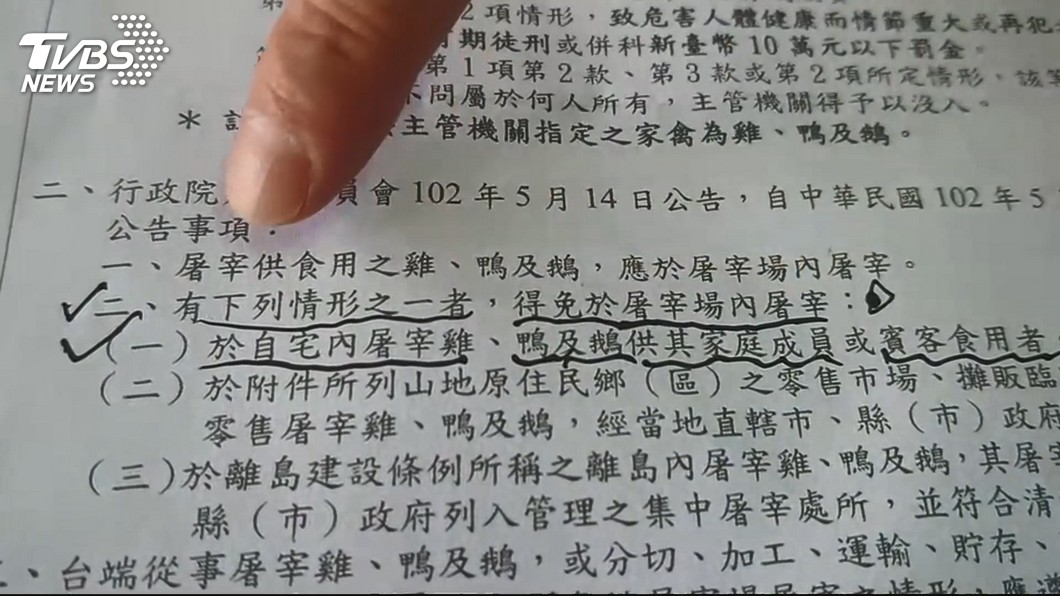 TVBS
NEWS
2項情形，致危害人體健康而情節重大或再犯
期徒刑或併科新臺幣10萬元以下罰金。
第1項第2款、第3款或第2項所定情形，該
不問屬於何人所有，主管機關得予以沒入。
＊ 主管機關指定之家禽為雞、鴨及鵝。
二、行政院 員會102年5月14日公告，自中華民國102年5
公告事項：
一、屠宰供食用之雞、鴨及鵝，應於屠宰場內屠宰。
二、有下列情形之一者，得免於屠宰場內屠宰：
（一）於自宅內屠宰雞、鴨及鵝供其家庭成員或賓客食用者
（二）於附件所列山地原住民鄉（區）之零售市場、攤販臨
零售屠宰雞、鴨及鵝，經當地直轄市、縣（市）政府
（三）於離島建設條例所稱之離島內屠宰雞、鴨及鵝，其屠宰
縣（市）政府列入管理之集中屠宰處所，並符合清
、台端從事屠宰雞、鴨及鵝，或分切、加工、運輸、貯存、
屠宰場屠宰之情形，應